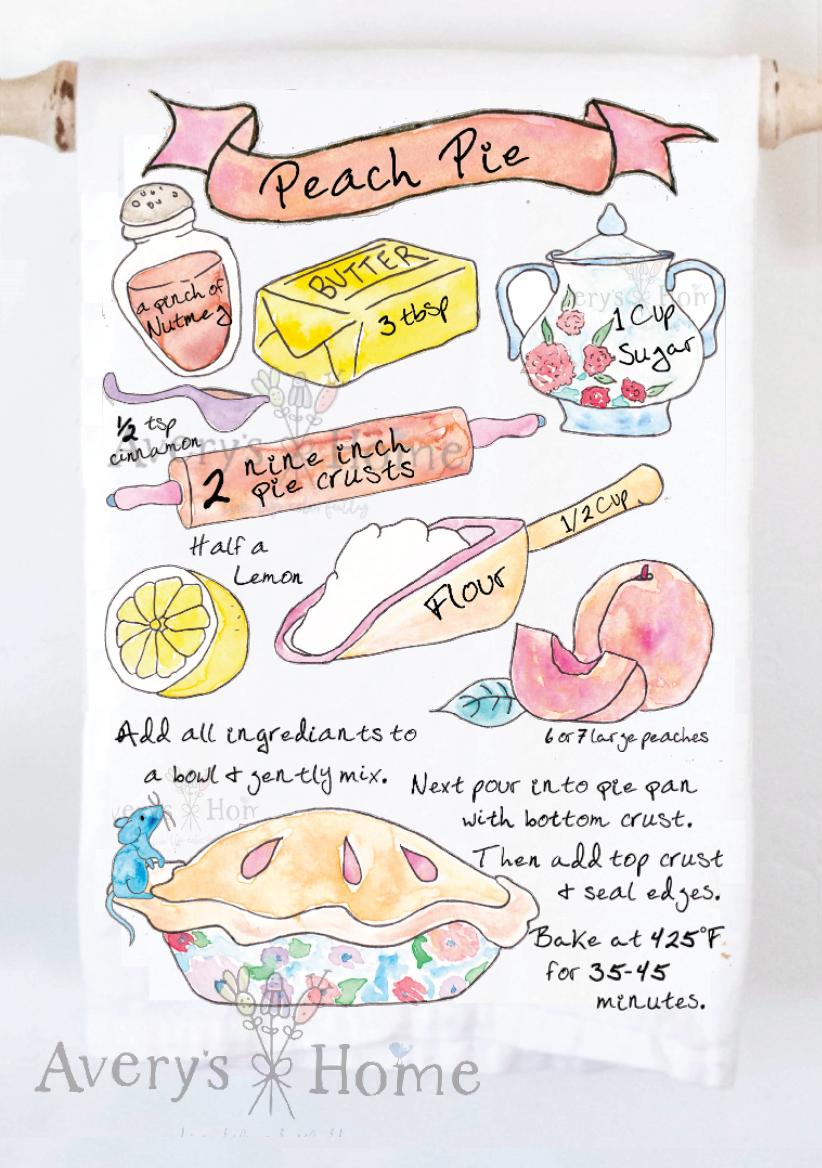 Peach Pie
a pinch of
Nutmeg
BUTTER
3 tbsp
1 Cup
Sugar
Avery's Home
1/2 tsp
cinnamon
Avery's Home
2 nine inch
pie crusts
1/2 Cup
Half a
Lemon
Flour
6 or 7 large peaches
Add all ingrediants to
a bowl & gently mix.
Next pour into pie pan
with bottom crust.
Avery's Hom
Then add top crust
& seal edges.
Bake at 425°F
for 35-45
minutes.
Avery's Home